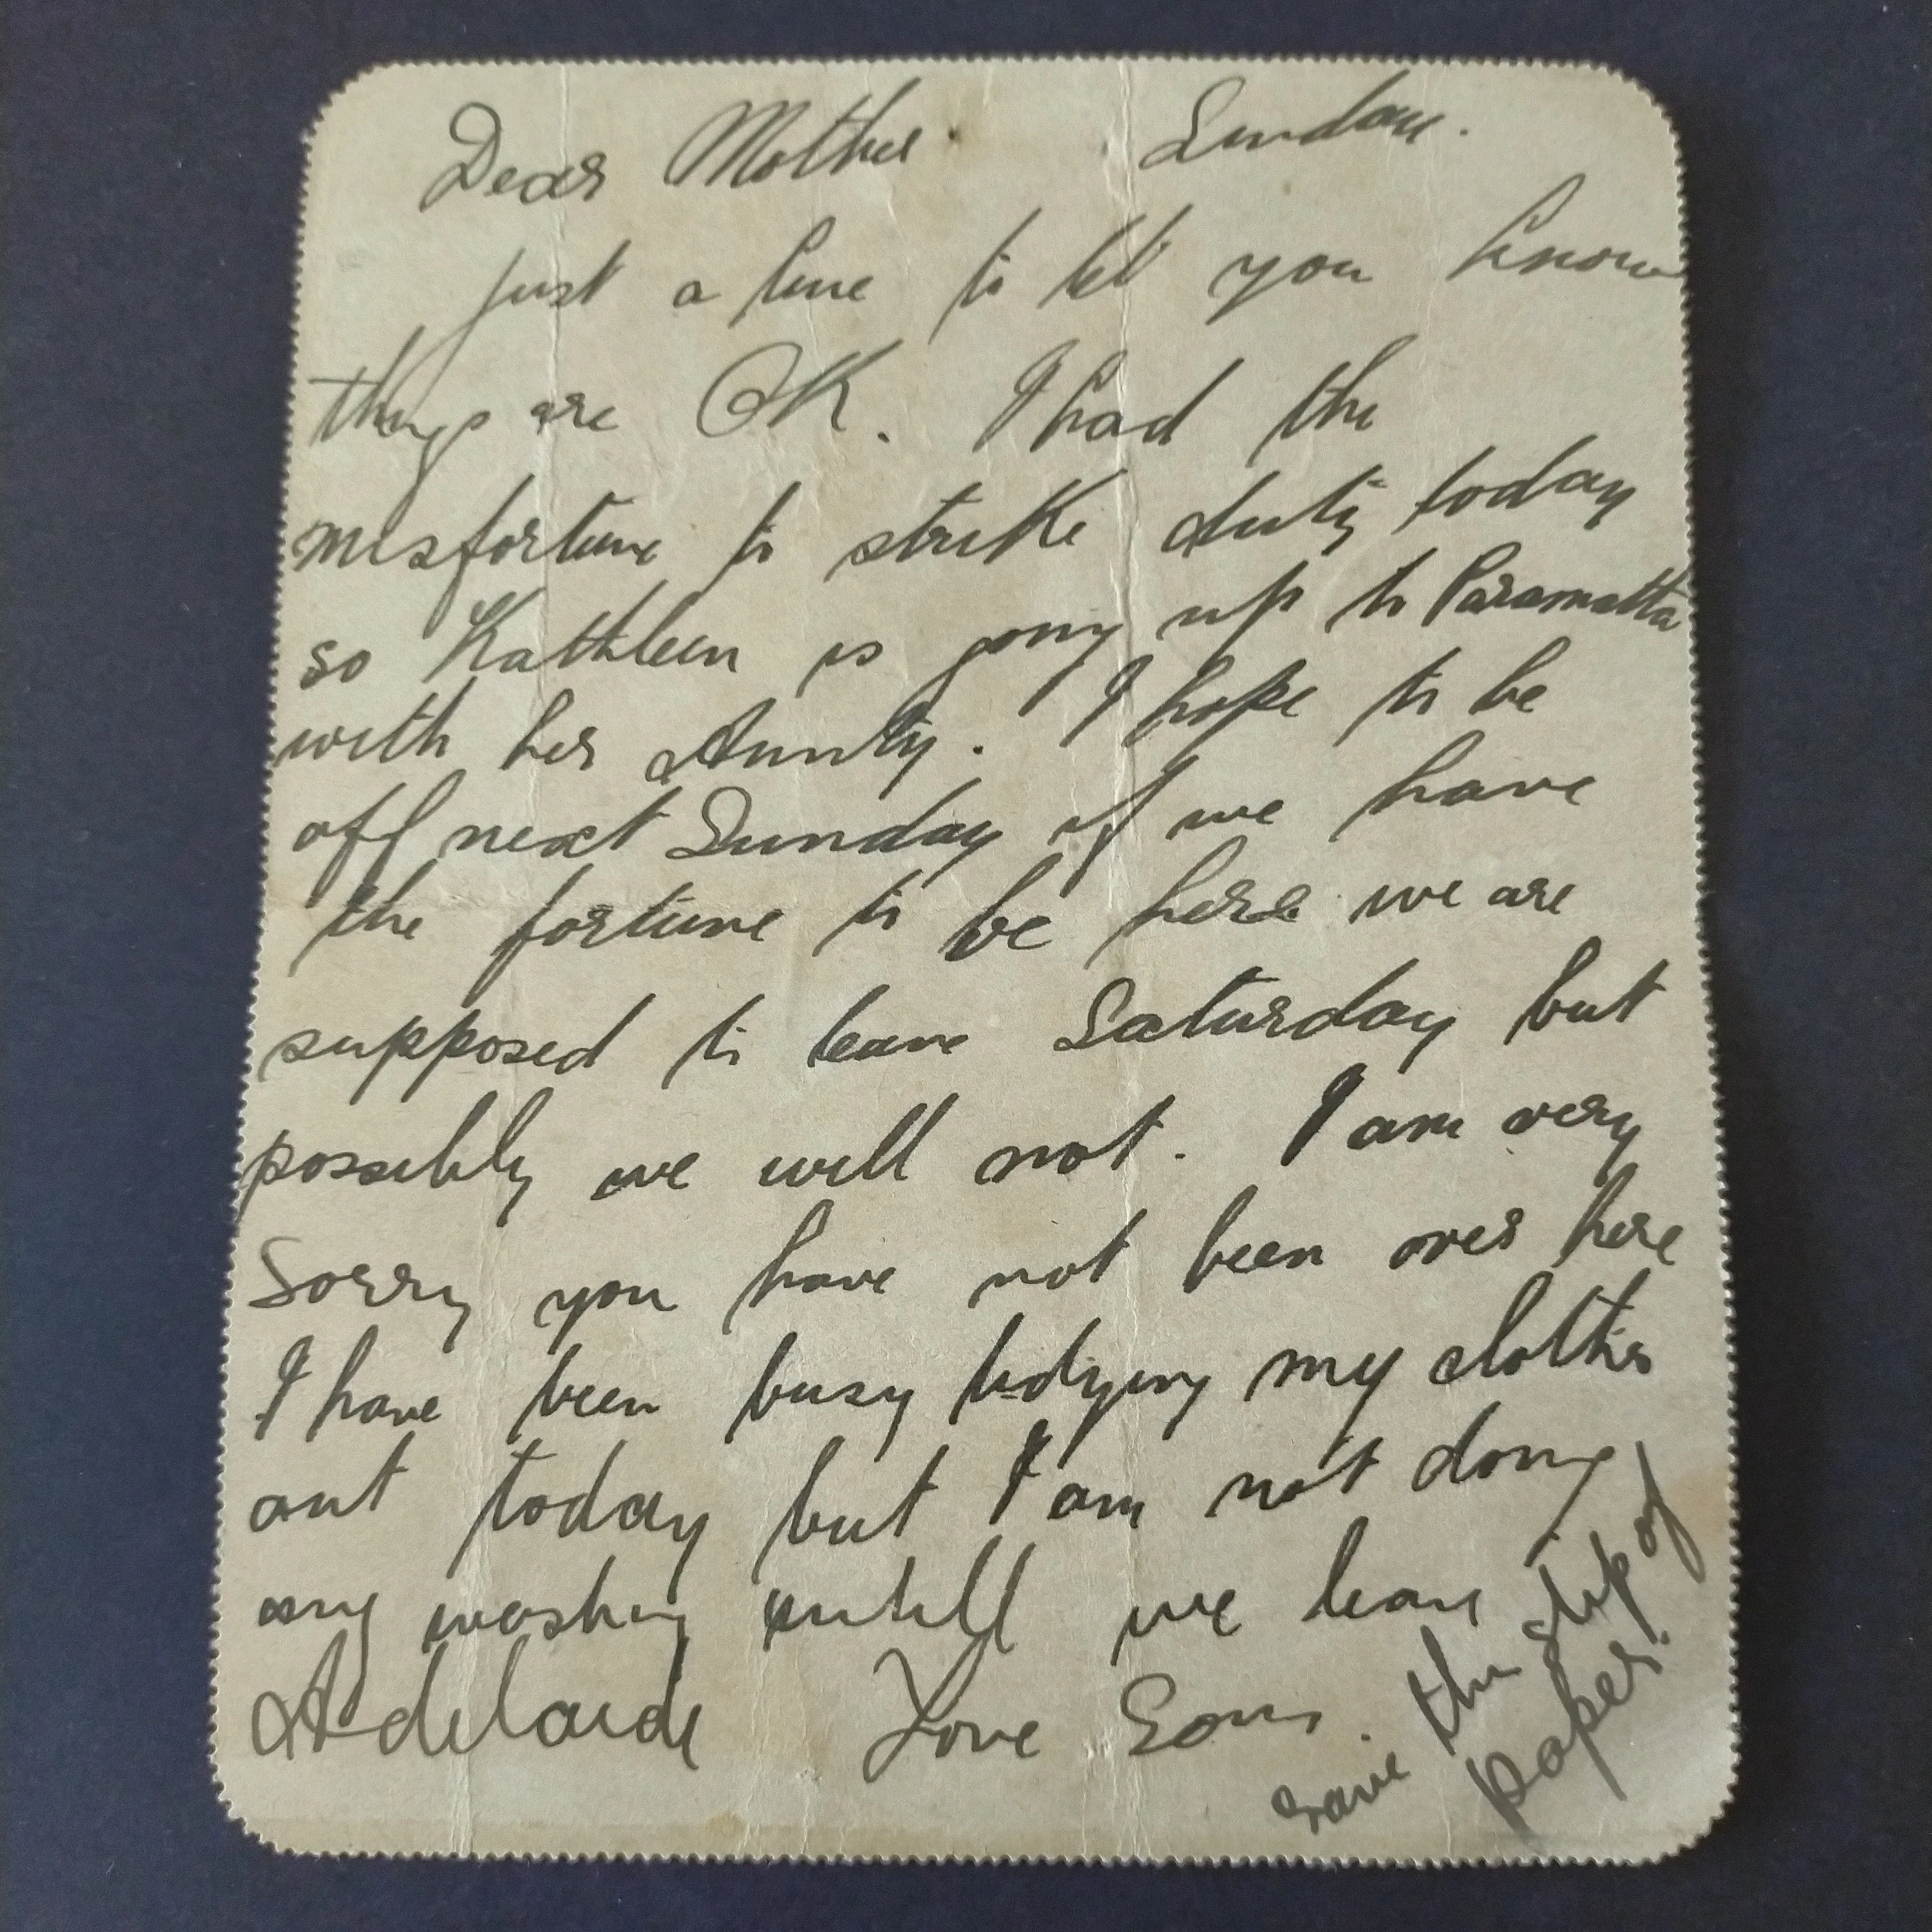 Dear Mother Sunday.
just a line to let you know
things are OK. I had the
misfortune to strike duty today
so Kathleen is going up to Paramatta
with her Aunty. I hope to be
off next Sunday if we have
the fortune to be here we are
supposed to leave Saturday but
possibly we will not. I am very
Sorry you have not been over here
I have been busy tidying my clothes
out today but I am not doing
any washing untill we leave
Adelaide Love Son.
save this slip of
paper.